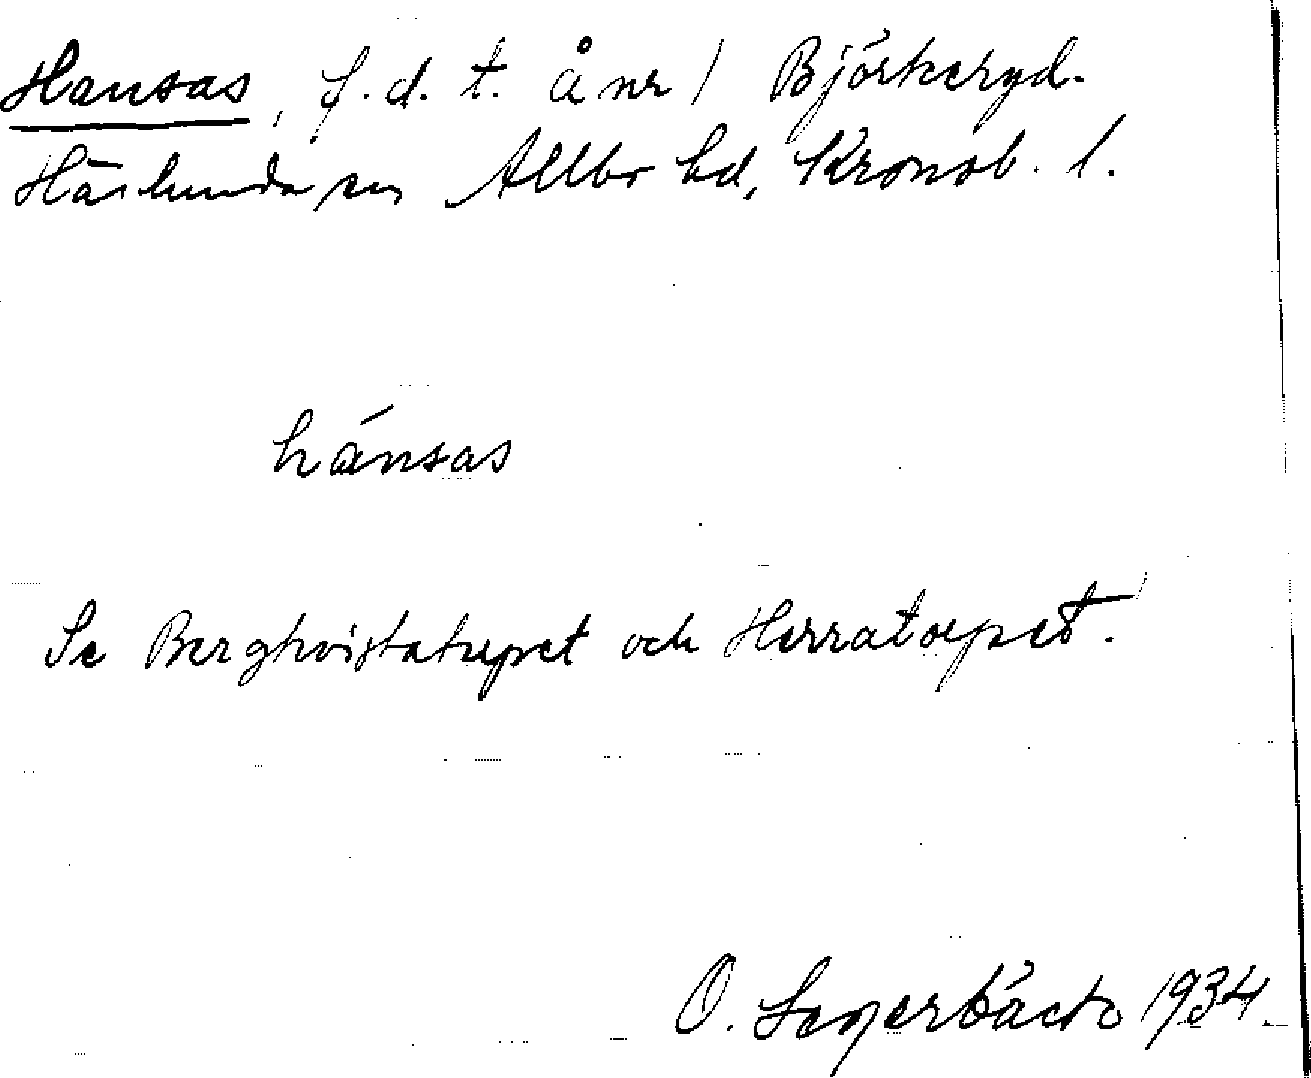 Hansas, f.d.t. å nr 1 Björkeryd.
Härlunda sn Allbo hd, Kronob. l.
hánsas
Se Bergkvistatorpet och Herratorpet.
O. Segerbäck 1934.